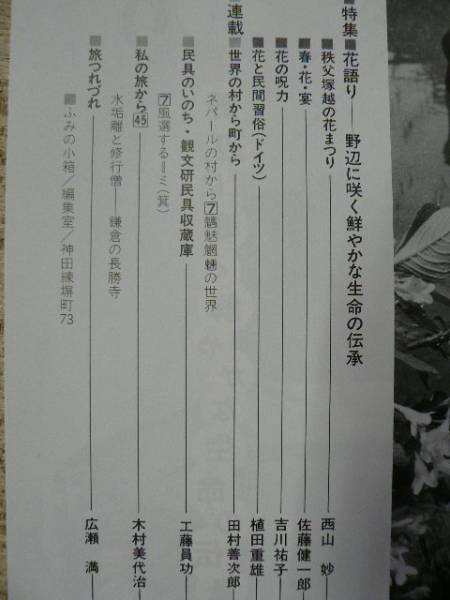 ■特集■花語り――野辺に咲く鮮やかな生命の伝承
■秩父塚越の花まつり――西山 妙
■春・花・宴――佐藤健一郎
■花の呪力――吉川祐子
■花と民間習俗(ドイツ)――植田重雄
連載
■世界の村から町から――田村善次郎
ネパールの村から[7]魑魅魍魎の世界
■民具のいのち・観文研民具収蔵庫――工藤員功
[7]風選する=ミ(箕)
■私の旅から[45]――木村美代治
水垢離と修行僧――鎌倉の長勝寺
■旅つれづれ――広瀬 満
■ふみの小箱/編集室/神田練塀町73